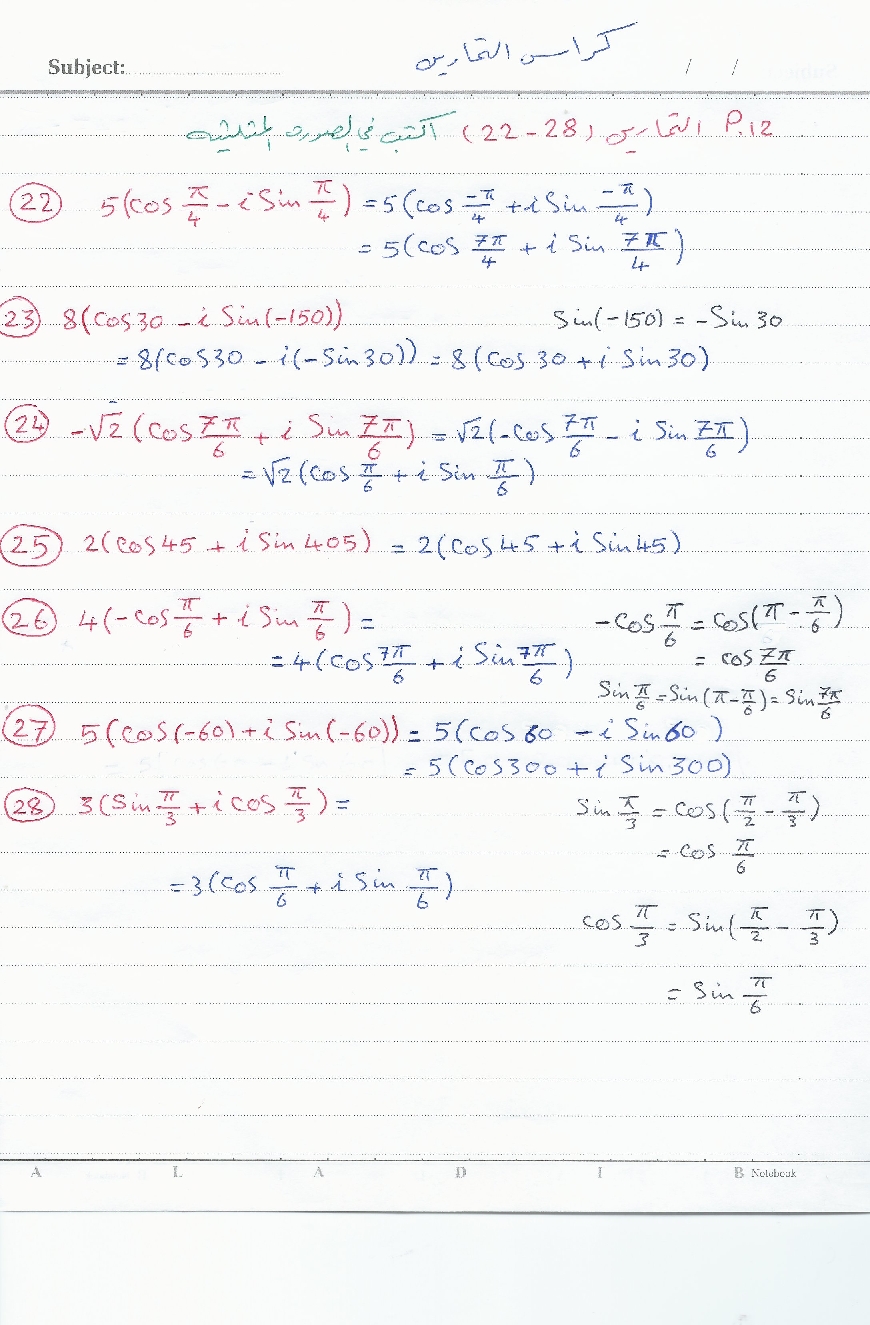 كراس التمارين
Subject: / /
P.12 التمارين (22-28) اكتب في الصورة المثلثية
22 5(cos π/4 - i Sin π/4) = 5(cos -π/4 + i Sin -π/4)
= 5(cos 7π/4 + i Sin 7π/4)
23 8(cos30 - i Sin(-150)) Sin(-150) = -Sin 30
= 8(cos30 - i(-Sin30)) = 8(cos 30 + i Sin30)
24 -√2 (cos 7π/6 + i Sin 7π/6) = √2(-cos 7π/6 - i Sin 7π/6)
= √2(cos π/6 + i Sin π/6)
25 2(cos45 + i Sin 405) = 2(cos45 + i Sin45)
26 4(-cos π/6 + i Sin π/6) = -cos π/6 = cos(π - π/6)
= 4(cos 7π/6 + i Sin 7π/6) = cos 7π/6
Sin π/6 = Sin(π - π/6) = Sin 7π/6
27 5(cos(-60) + i Sin(-60)) = 5(cos 60 - i Sin60)
= 5(cos300 + i Sin 300)
28 3(Sin π/3 + i cos π/3) = Sin π/3 = cos(π/2 - π/3)
= cos π/6
= 3(cos π/6 + i Sin π/6)
cos π/3 = Sin(π/2 - π/3)
= Sin π/6
A L A D I B Notebook